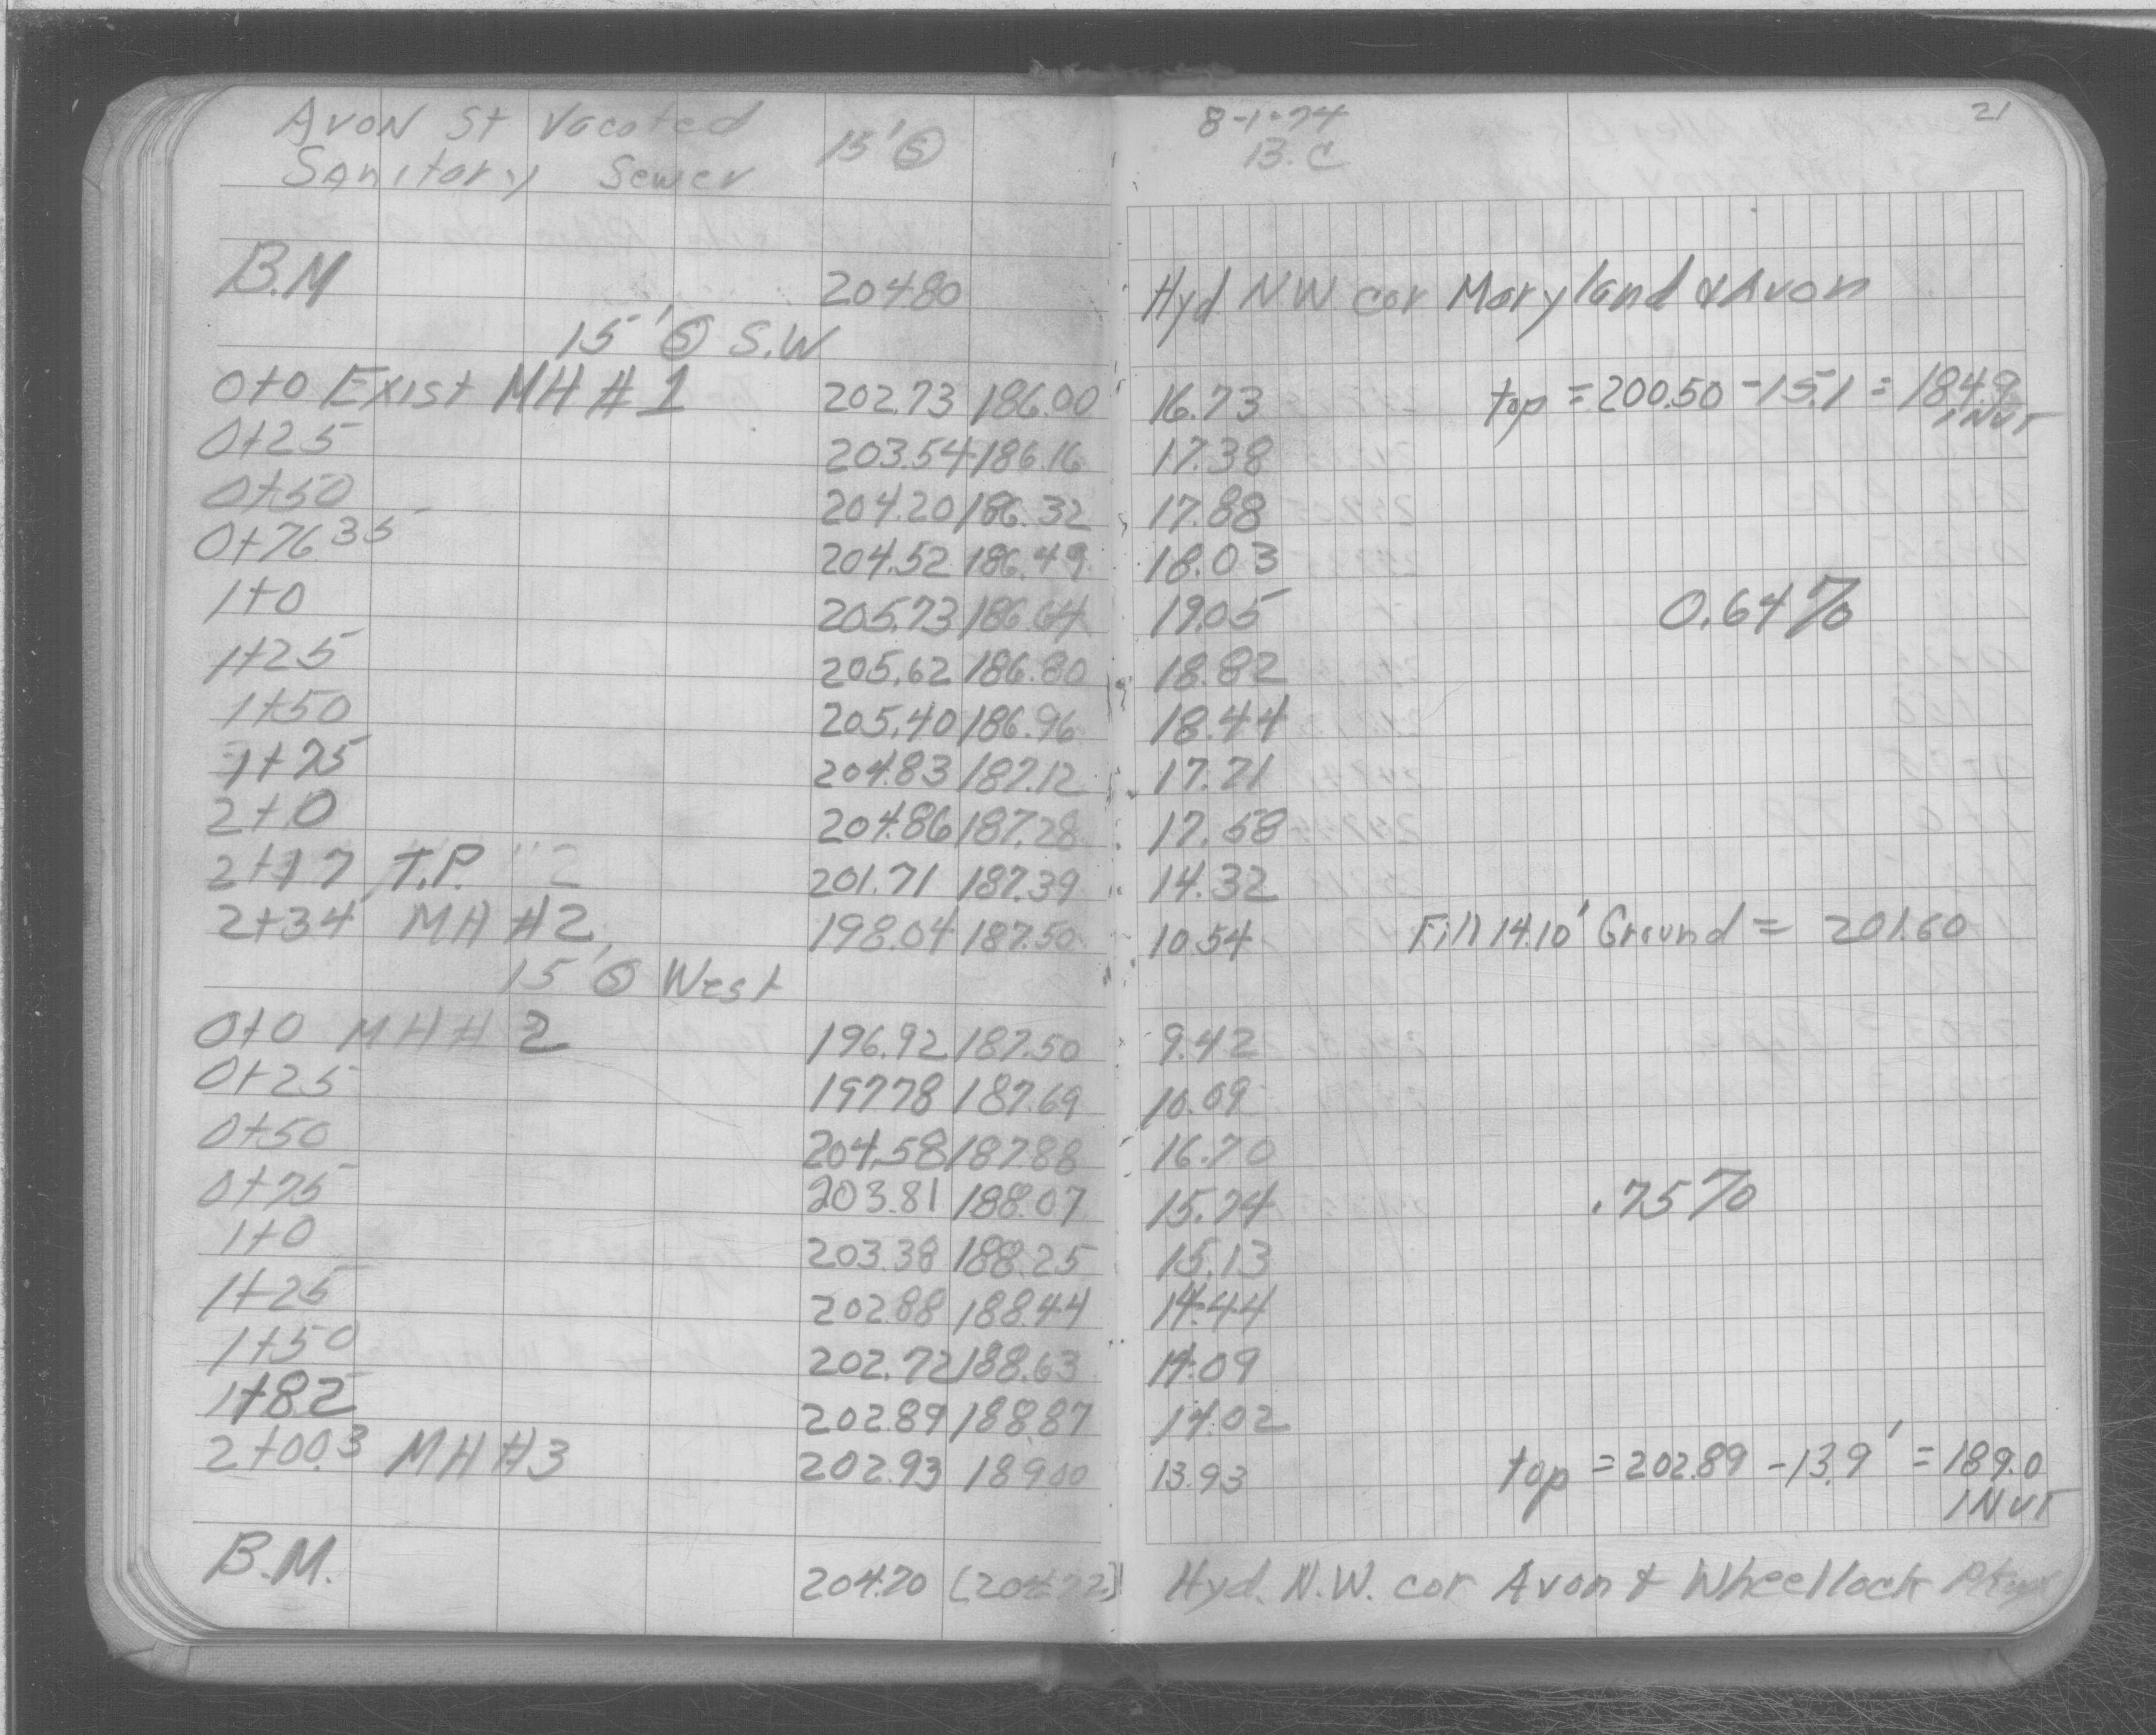 Avon St Vacated 15' Ⓢ 8-1-74 21
Sanitary Sewer B.C
B.M 204.80 Hyd. N.W. cor Maryland & Avon
15' Ⓢ S.W
0+0 Exist MH # 1 202.73 186.00 16.73 top = 200.50 - 15.1 = 184.9
INVT
0+25 203.54 186.16 17.38
0+50 204.20 186.32 17.88
0+76.35 204.52 186.49 18.03
1+0 205.73 186.64 19.05 0.64%
1+25 205.62 186.80 18.82
1+50 205.40 186.96 18.44
1+75 204.83 187.12 17.71
2+0 204.86 187.28 17.58
2+17 T.P. "2 201.71 187.39 14.32
2+34 MH #2 198.04 187.50 10.54 Fill 14.10' Ground = 201.60
15' Ⓢ West
0+0 MH # 2 196.92 187.50 9.42
0+25 197.78 187.69 10.09
0+50 204.58 187.88 16.70
0+75 203.81 188.07 15.74 .75%
1+0 203.38 188.25 15.13
1+25 202.88 188.44 14.44
1+50 202.72 188.63 14.09
1+82 202.89 188.87 14.02
2+00.3 MH #3 202.93 189.00 13.93 top = 202.89 - 13.9' = 189.0
INVT
B.M. 204.70 (204.72) Hyd. N.W. cor Avon & Wheellock Pkwy